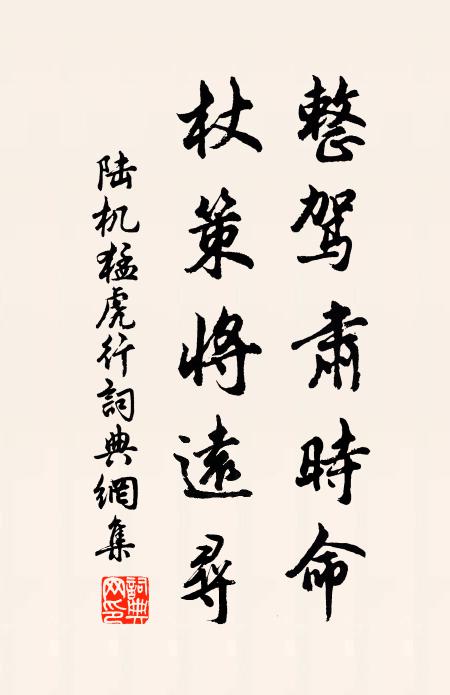 整駕肅時命
杖策將遠尋
陆机猛虎行詞典網集
詞典网印